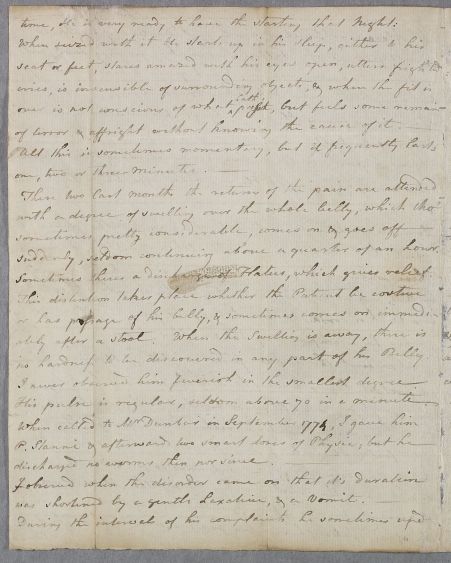 time, He is very ready to have the starting that Night:
When seized with it He starts up in his Sleep, either to his
seat or feet, stares amazed with his eyes open, utters frightful
cries, is insensible of surrounding objects, & when the fit is
over is not conscious of what hath passed, but feels some remains
of terror & affright without knowing the cause of it —
All this is sometimes momentary, but it frequently lasts
one, two or three minutes. —
These two last months the returns of the pain are attended
with a degree of swelling over the whole belly, which tho'
sometimes pretty considerable, comes on & goes off
suddenly, seldom continuing above a quarter of an hour.
Sometimes there's a discharge of Flatus, which gives relief
This distention takes place whether the Patient be costive
or has passage of his belly, & sometimes comes on immedi-
ately after a stool. When the Swelling is away, there is
no hardness to be discovered in any part of his Belly.
I never observed him feverish in the smallest degree
His pulse is regular, seldom above 70 in a minute
When called to Mr Dunbar in September 1774, I gave him
P. Stanni & afterward two smart doses of Physic, but he
discharged no worms then nor since. —
I observed when the disorder came on that its duration
was shortened by a gentle Laxative, & a Vomit. —
During the interval of his complaints he sometimes used